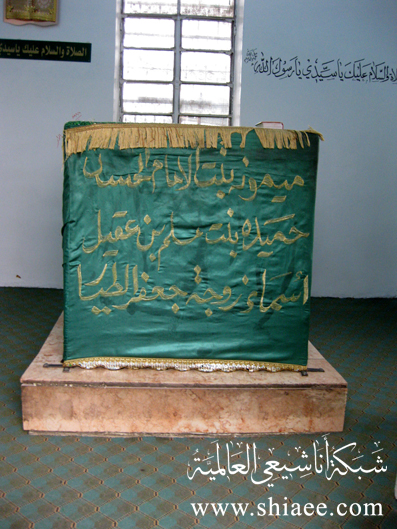 الصلاة والسلام عليك ياسيدي
الصلاة والسلام عليك ياسيدي يارسول الله
ميمونة بنت الامام الحسن
حميدة بنت مسلم بن عقيل
أسماء زوجة جعفر الطيار
شبكة أنا شيعي العالمية
www.shiaee.com